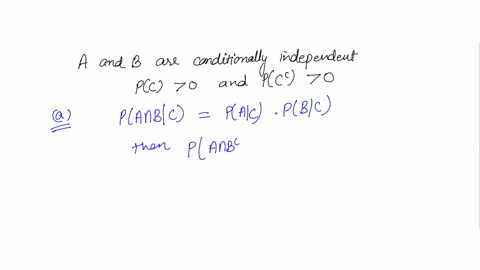 A and B are conditionally independent
P(C) > 0 and P(Cᶜ) > 0
(a) P(A∩B|C) = P(A|C) . P(B|C)
then P(A∩Bᶜ